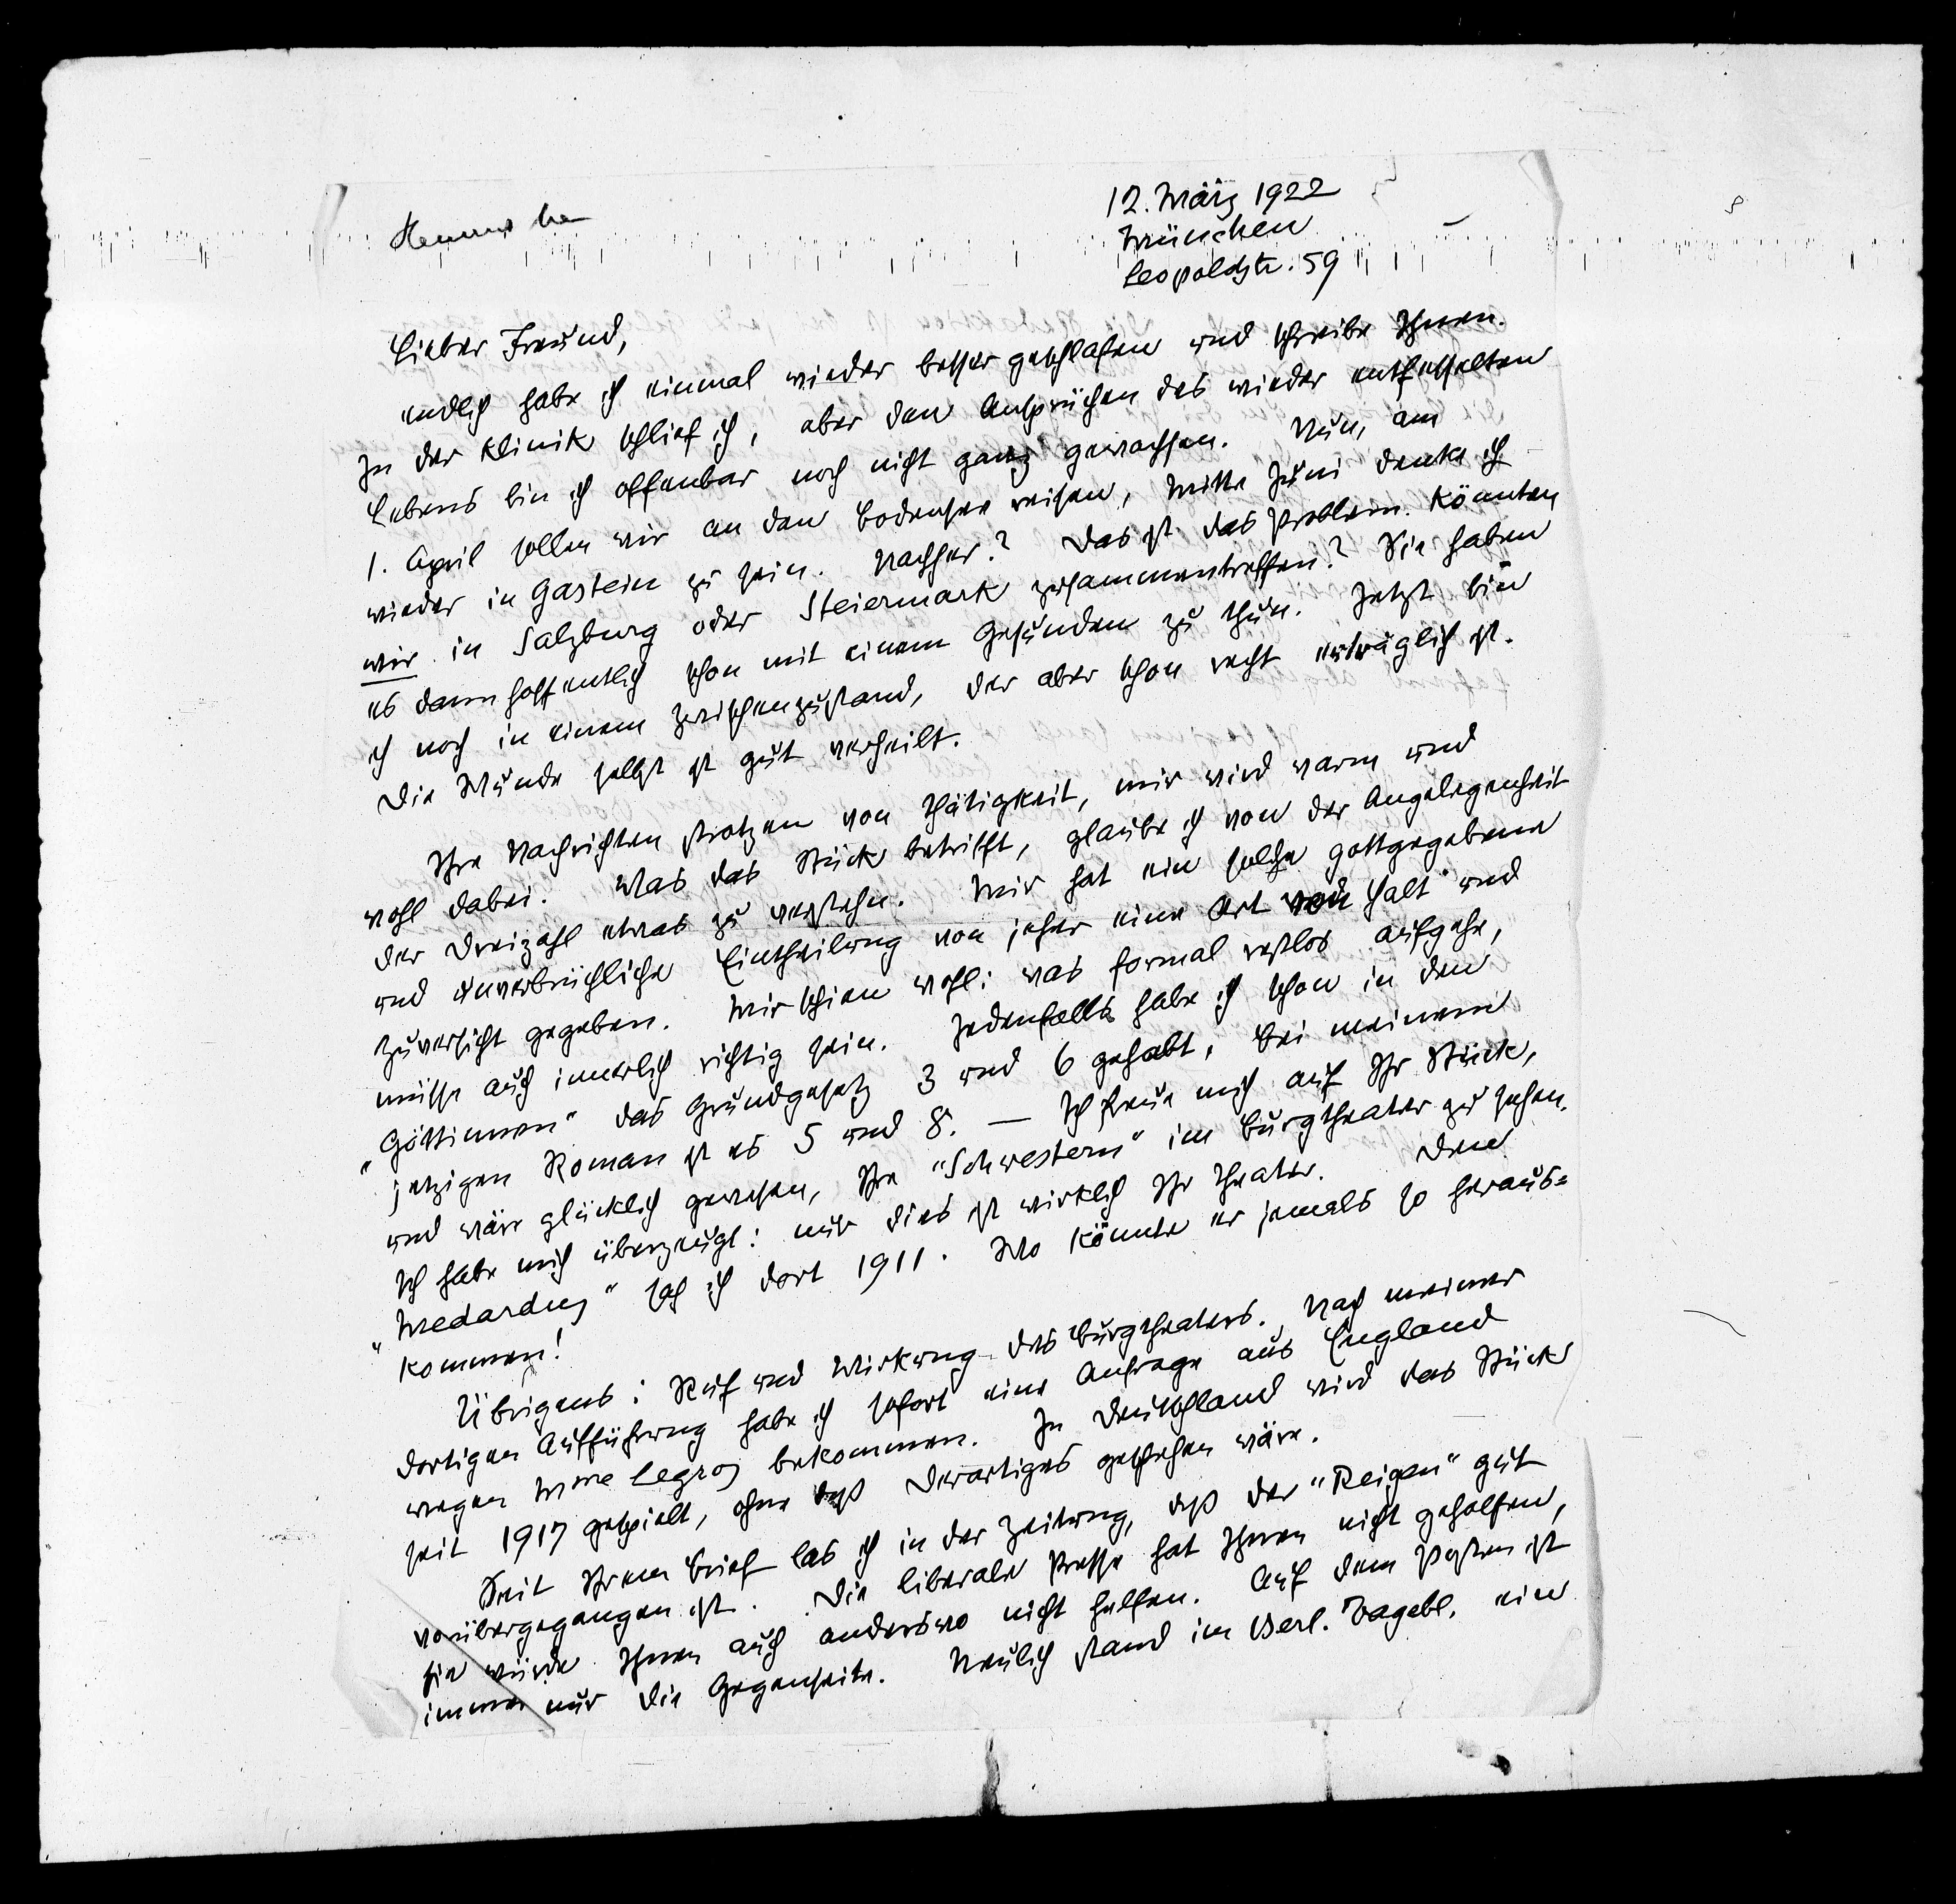 12. März 1922
München
Leopoldstr. 59
Lieber Freund,
endlich habe ich einmal wieder besser geschlafen und schreibe Ihnen.
In der Klinik schlief ich, aber den Ansprüchen des wieder entfesselten
Lebens bin ich offenbar noch nicht ganz gewachsen. Nun, am
1. April sollen wir an den Bodensee reisen, Mitte Juni denke ich
wieder in Gastein zu sein. Nachher? Das ist das Problem. Könnten
wir in Salzburg oder Steiermark zusammentreffen? Sie haben
es dann hoffentlich schon mit einem Gesunden zu thun. Jetzt bin
ich noch in einem Zwischenzustand, der aber schon recht erträglich ist.
Die Wunde selbst ist gut verheilt.
Ihre Nachrichten strotzen von Thätigkeit, mir wird warm und
wohl dabei. Was das Stück betrifft, glaube ich von der Angelegenheit
der Dreizahl etwas zu verstehn. Mir hat ein solche gottgegebene
und unverbrüchliche Eintheilung von jeher eine Art von Halt und
Zuversicht gegeben. Mir schien wohl: was formal restlos aufgehe,
müsse auch innerlich richtig sein. Jedenfalls habe ich schon in den
„Göttinnen“ das Grundgesetz 3 und 6 gehabt, bei meinem
jetzigen Roman ist es 5 und 8. — Ich freue mich auf Ihr Stück,
und wäre glücklich gewesen, Ihre „Schwestern“ im Burgtheater zu sehen.
Ich habe mich überzeugt: nur dies ist wirklich Ihr Theater. Den
„Medardus“ sah ich dort 1911. Wo könnte er jemals so heraus=
kommen!
Übrigens: Ruf und Wirkung des Burgtheaters. Nach meiner
dortigen Aufführung habe ich sofort eine Anfrage aus England
wegen Mme Legros bekommen. In Deutschland wird das Stück
seit 1917 gespielt, ohne daß Derartiges geschehen wäre.
Seit Ihrem Brief las ich in der Zeitung, daß der „Reigen“ gut
vorübergegangen ist. Die liberale Presse hat Ihnen nicht geholfen,
sie würde Ihnen auch anderswo nicht helfen. Auf dem Posten ist
immer nur die Gegenseite. Neulich stand im Berl. Tagebl. ein